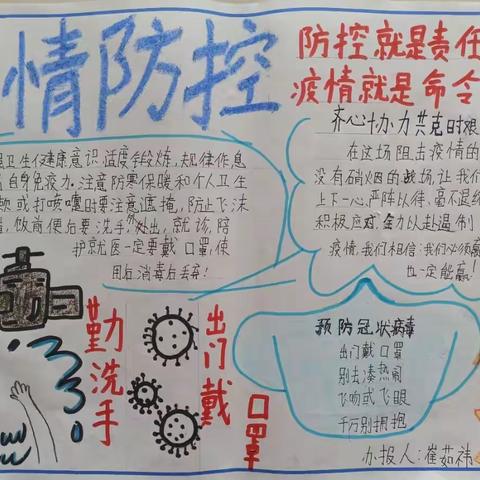 情防控
防控就是责任
疫情就是命令
卫生健康意识适度手段炼，规律作息
自身免疫力.注意防寒保暖和个人卫生
嗽或打喷嚏时要注意遮掩，防止飞沫
饭前便后要洗手.外出，就诊，陪
护就医一定要戴口罩，使
用后消毒后丢弃！
齐心协力共克时艰
在这场阻击疫情的
没有硝烟的战场，让我们
上下一心，严阵以待、毫不退缩
积极应对.全力以赴遏制
疫情，我们相信：我们必须赢
也一定能赢！
勤洗手
出门戴
口罩
预防冠状病毒
出门戴口罩
别去凑热闹
飞吻或飞眼
千万别拥抱
办报人：崔茹祎